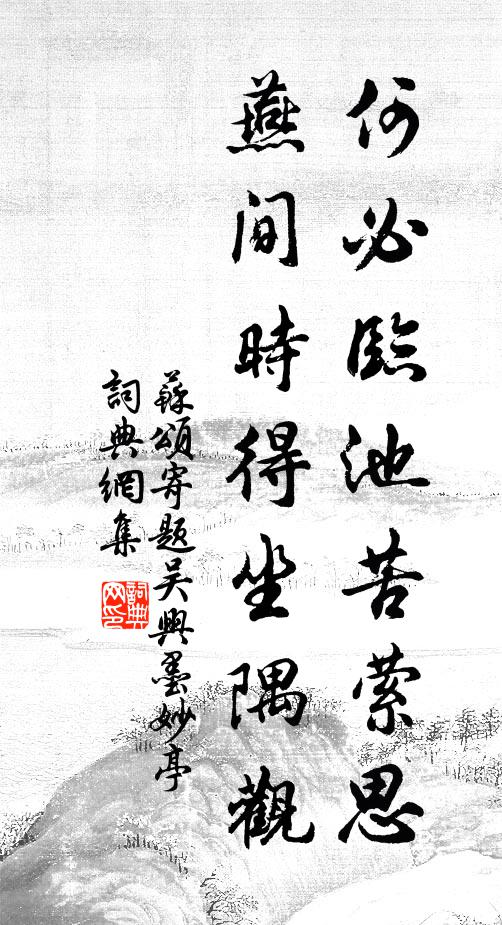 何必臨池苦縈思
燕間時得坐隅觀
蘇頌寄題吳興墨妙亭
詞典網集
詞典网印